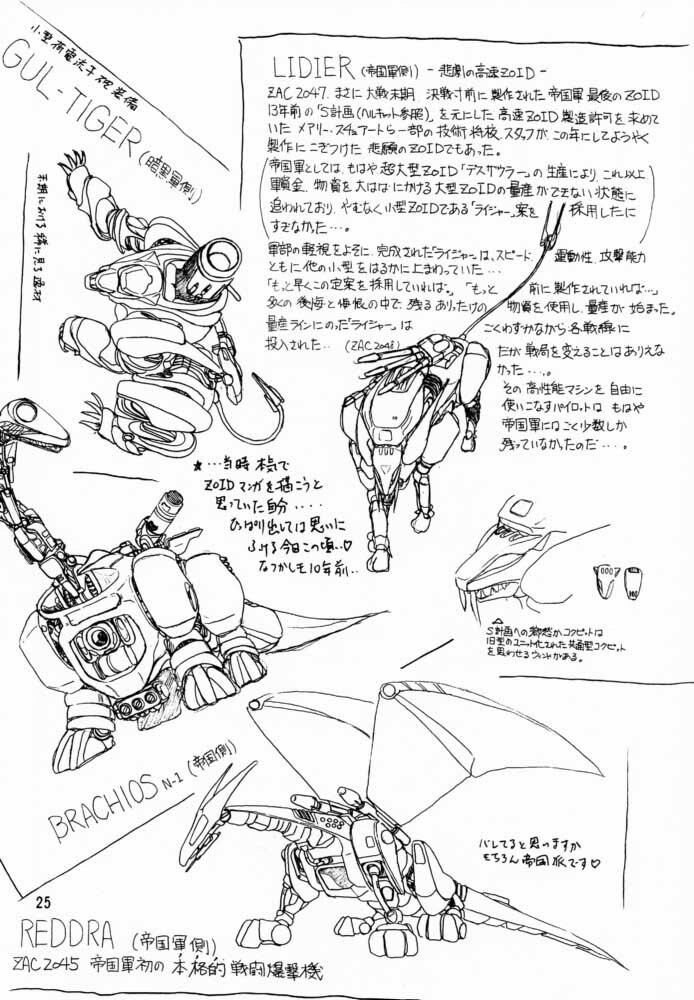 小型荷電粒子砲装備
GUL-TIGER (暗黒軍側)
LIDIER (帝国軍側) - 悲劇の高速ZOID -
ZAC 2047. まさに大戦末期、決戦寸前に製作された帝国軍最後のZOID
13年前の「S計画(ヘルキャット参照)」を元にした高速ZOID製造許可を求めて
いたメアリー・スチュアートら一部の技術将校、スタッフが、この年にしてようやく
製作にこぎつけた悲願のZOIDでもあった。
帝国軍としては、もはや超大型ZOID「デスザウラー」の生産により、これ以上
軍資金、物資を大はばにかける大型ZOIDの量産ができない状態に
追われており、やむなく小型ZOIDである「ライジャー」案を採用したに
すぎなかった…。
軍部の軽視をよそに、完成された「ライジャー」は、スピード、運動性、攻撃能力
ともに他の小型をはるかに上まわっていた…
「もっと早くこの定案を採用していれば。」「もっと前に製作されていれば…」
多くの後悔と悔恨の中で、残るありったけの物資を使用し、量産が始まった。
量産ラインにのった「ライジャー」は ごくわずかながら各戦線に
投入された.. (ZAC 2048)
だが戦局を変えることはありえな
かった…。
その高性能マシンを自由に
使いこなすパイロットは もはや
帝国軍にはごく少数しか
残っていなかったのだ…。
★…当時 本気で
ZOIDマンガを描こうと
思っていた自分....
ひっぱり出しては思いに
ふける今日この頃..♡
なつかしも10年前..
S計画への郷愁か コクピットは
旧型のユニット化された共通型コクピット
を思わせるウィンドがある。
BRACHIOS N-1 (帝国側)
バレてると思いますか
もちろん帝国派です♡
25
REDDRA (帝国軍側)
ZAC 2045 帝国軍初の本格的戦闘爆撃機